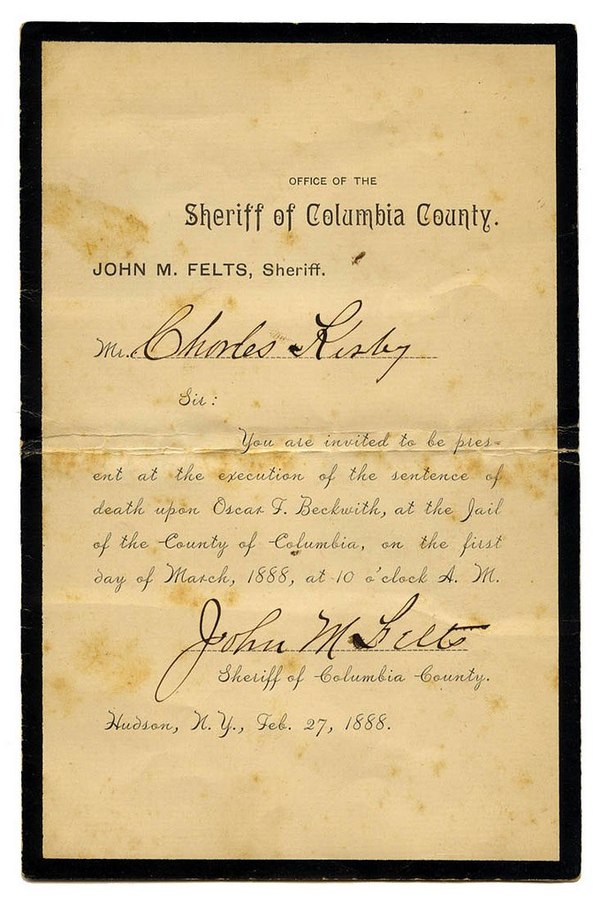 OFFICE OF THE
Sheriff of Columbia County.
JOHN M. FELTS, Sheriff.
Mr. Charles Kirby
Sir:
You are invited to be pres-
ent at the execution of the sentence of
death upon Oscar F. Beckwith, at the Jail
of the County of Columbia, on the first
day of March, 1888, at 10 o'clock A. M.
John M Felts
Sheriff of Columbia County.
Hudson, N. Y., Feb. 27, 1888.